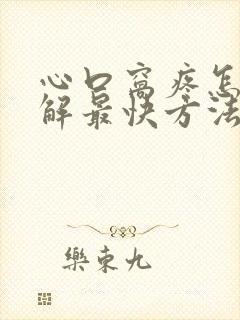 心口窝疼怎
解最快方法
樂東九